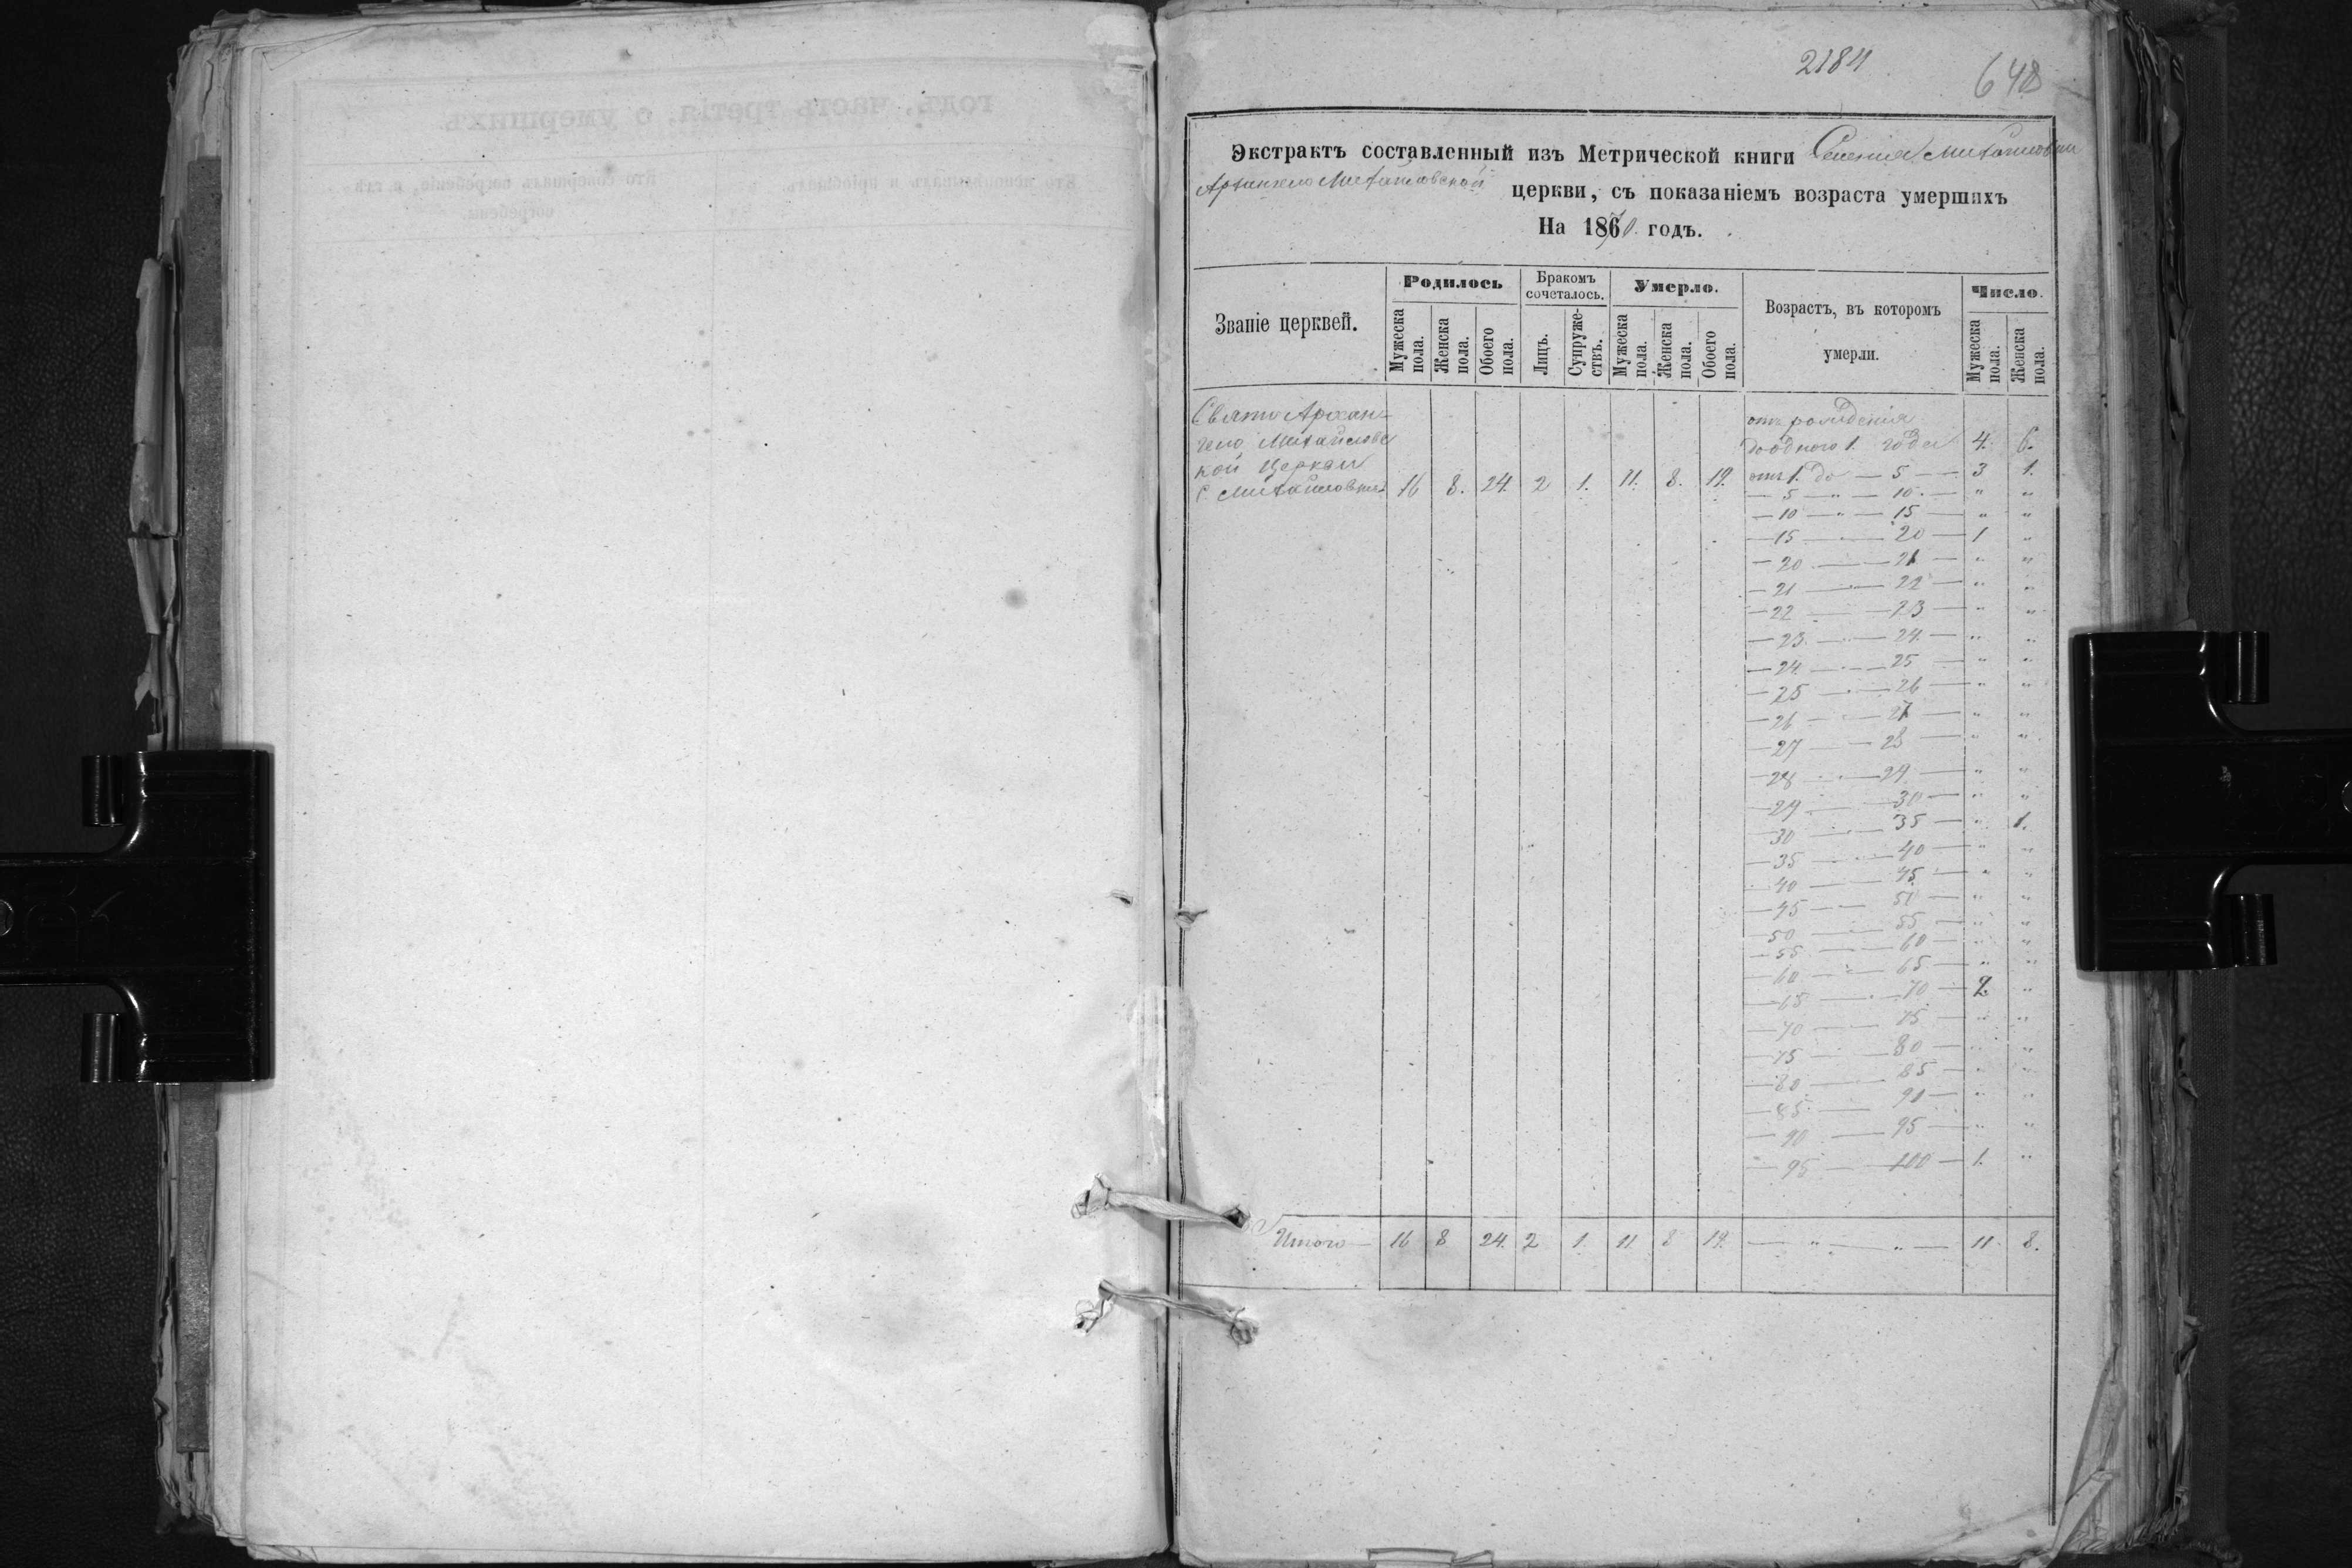 2184
648
Экстрактъ составленный изъ Метрической книги Селенія Михайловки
Архангело Михайловской церкви, съ показаніемъ возраста умершихъ
На 1870 годъ.
Званіе церквей.
Родилось
Мужеска пола.
Женска пола.
Обоего пола.
Бракомъ сочеталось.
Лицъ.
Супружествъ.
Умерло.
Мужеска пола.
Женска пола.
Обоего пола.
Возрастъ, въ которомъ
умерли.
Число.
Мужеска пола.
Женска пола.
Свято Архан-
гело Михайловс
кой Церкви
с Михайловки 16 8. 24. 2 1. 11. 8. 19.
отъ рожденія
до одного 1. года 4. 6.
отъ 1. до — 5 — 3 1.
— 5 — " — 10. — " "
— 10 — " — 15 — " "
— 15 — 20 — 1 "
— 20 — 21 — " "
— 21 — 22 — " "
— 22 — 23 — " "
— 23. — 24. — " "
— 24 — 25 — " "
— 25 — 26 — " "
— 26 — 27 — " "
— 27 — 28 — " "
— 28 — 29 — " "
— 29 — 30 — " "
— 30 — 35 — " 1.
— 35 — 40 — " "
— 40 — 45. — " "
— 45 — 50 — " "
— 50 — 55 — " "
— 55 — 60 — " "
— 60 — 65 — " "
— 65 — 70 — 2. "
— 70 — 75 — " "
— 75 — 80 — " "
— 80 — 85 — " "
— 85 — 90 — " "
— 90 — 95 — " "
— 95 — 100 — 1. "
Итого — 16 8 24. 2 1. 11 8 19. — " — " — 11 8.
годъ, часть третія, о умершихъ
Кто исповѣдывалъ и пріобщалъ.
Кто совершалъ погребеніе, и гдѣ
погребены.